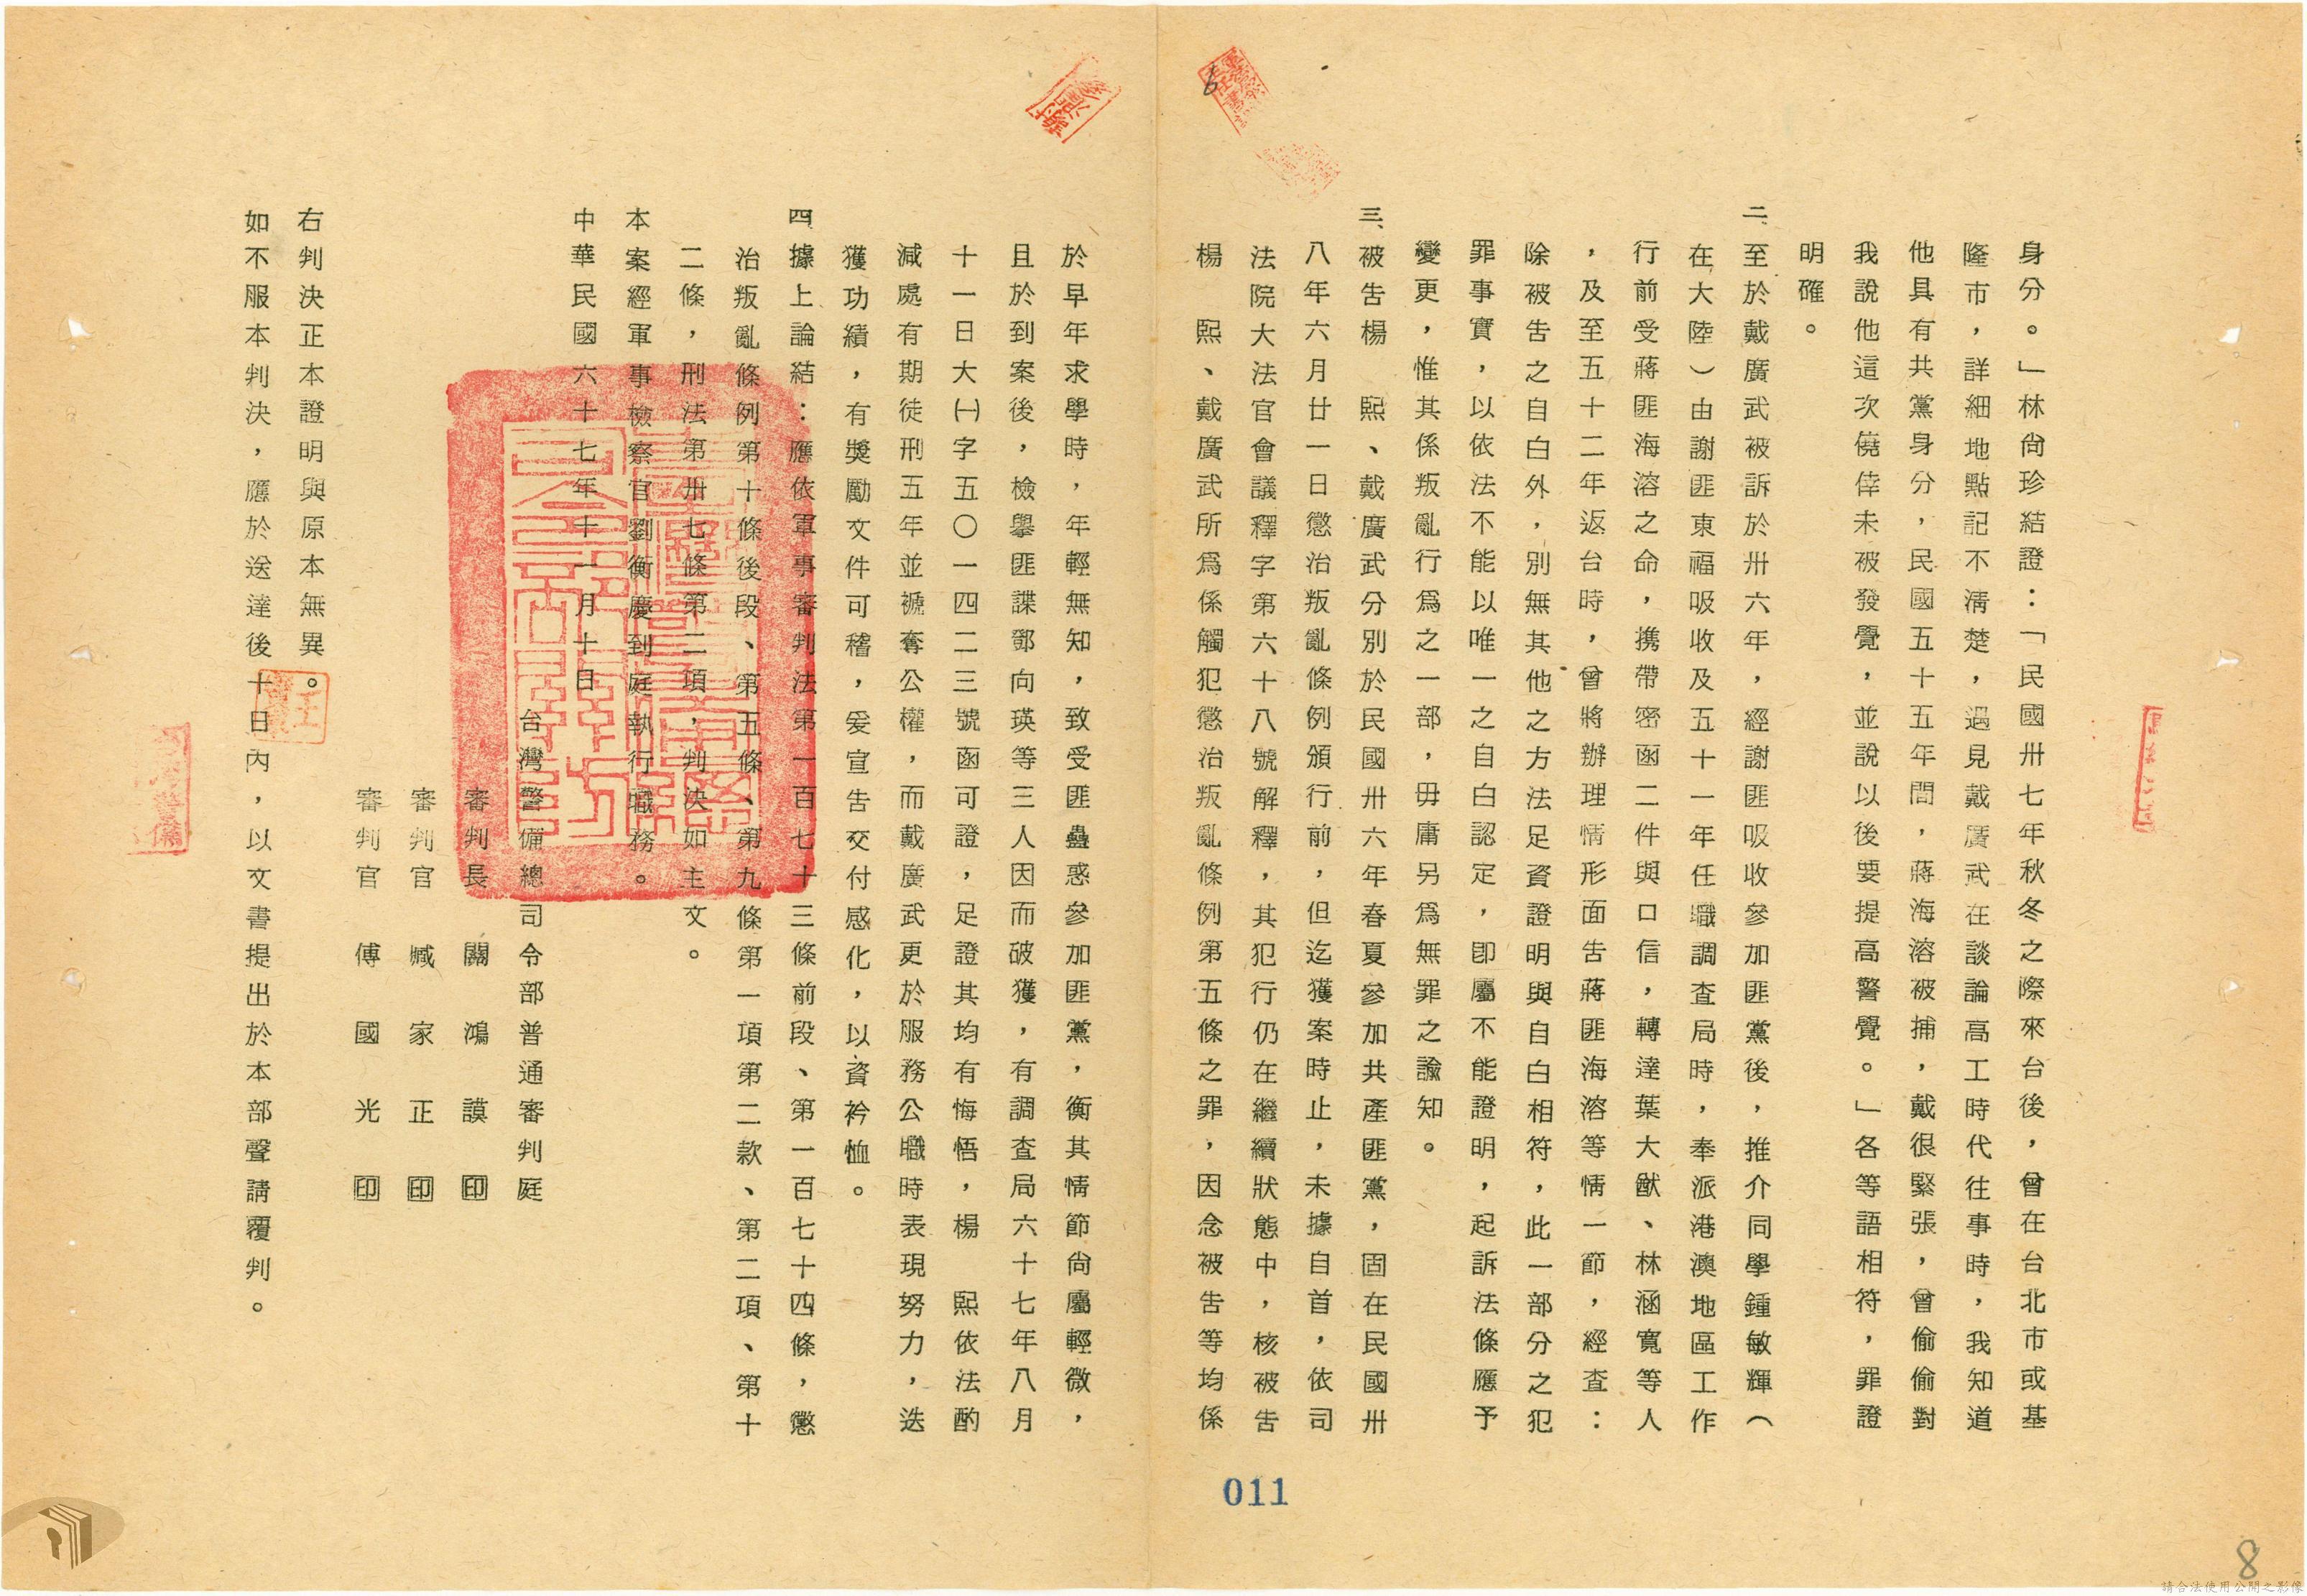 身分。」林尙珍結證：「民國卅七年秋冬之際來台後，曾在台北市或基
隆市，詳細地點記不清楚，遇見戴廣武在談論高工時代往事時，我知道
他具有共黨身分，民國五十五年間，蔣海溶被捕，戴很緊張，曾偷偷對
我說他這次僥倖未被發覺，並說以後要提高警覺。」各等語相符，罪證
明確。
二、至於戴廣武被訴於卅六年，經謝匪吸收參加匪黨後，推介同學鍾敏輝（
在大陸）由謝匪東福吸收及五十一年任職調查局時，奉派港澳地區工作
行前受蔣匪海溶之命，携帶密函二件與口信，轉達葉大猷、林涵寬等人
，及至五十二年返台時，曾將辦理情形面告蔣匪海溶等情一節，經查：
除被告之自白外，別無其他之方法足資證明與自白相符，此一部分之犯
罪事實，以依法不能以唯一之自白認定，卽屬不能證明，起訴法條應予
變更，惟其係叛亂行爲之一部，毋庸另爲無罪之諭知。
三、被告楊　熙、戴廣武分別於民國卅六年春夏參加共產匪黨，固在民國卅
八年六月廿一日懲治叛亂條例頒行前，但迄獲案時止，未據自首，依司
法院大法官會議釋字第六十八號解釋，其犯行仍在繼續狀態中，核被告
楊　熙、戴廣武所爲係觸犯懲治叛亂條例第五條之罪，因念被告等均係
於早年求學時，年輕無知，致受匪蠱惑參加匪黨，衡其情節尙屬輕微，
且於到案後，檢擧匪諜鄧向瑛等三人因而破獲，有調查局六十七年八月
十一日大㈠字五〇一四二三號函可證，足證其均有悔悟，楊　熙依法酌
減處有期徒刑五年並褫奪公權，而戴廣武更於服務公職時表現努力，迭
獲功績，有獎勵文件可稽，爰宣告交付感化，以資衿恤。
四、據上論結：應依軍事審判法第一百七十三條前段、第一百七十四條，懲
治叛亂條例第十條後段、第五條、第九條第一項第二款、第二項、第十
二條，刑法第卅七條第二項，判決如主文。
本案經軍事檢察官劉衡慶到庭執行職務。
中華民國六十七年十一月十日
台灣警備總司令部普通審判庭
審判長　關　鴻　謨　印
審判官　臧　家　正　印
審判官　傅　國　光　印
右判決正本證明與原本無異。
如不服本判決，應於送達後十日內，以文書提出於本部聲請覆判。
011
8
6
請合法使用公開之影像